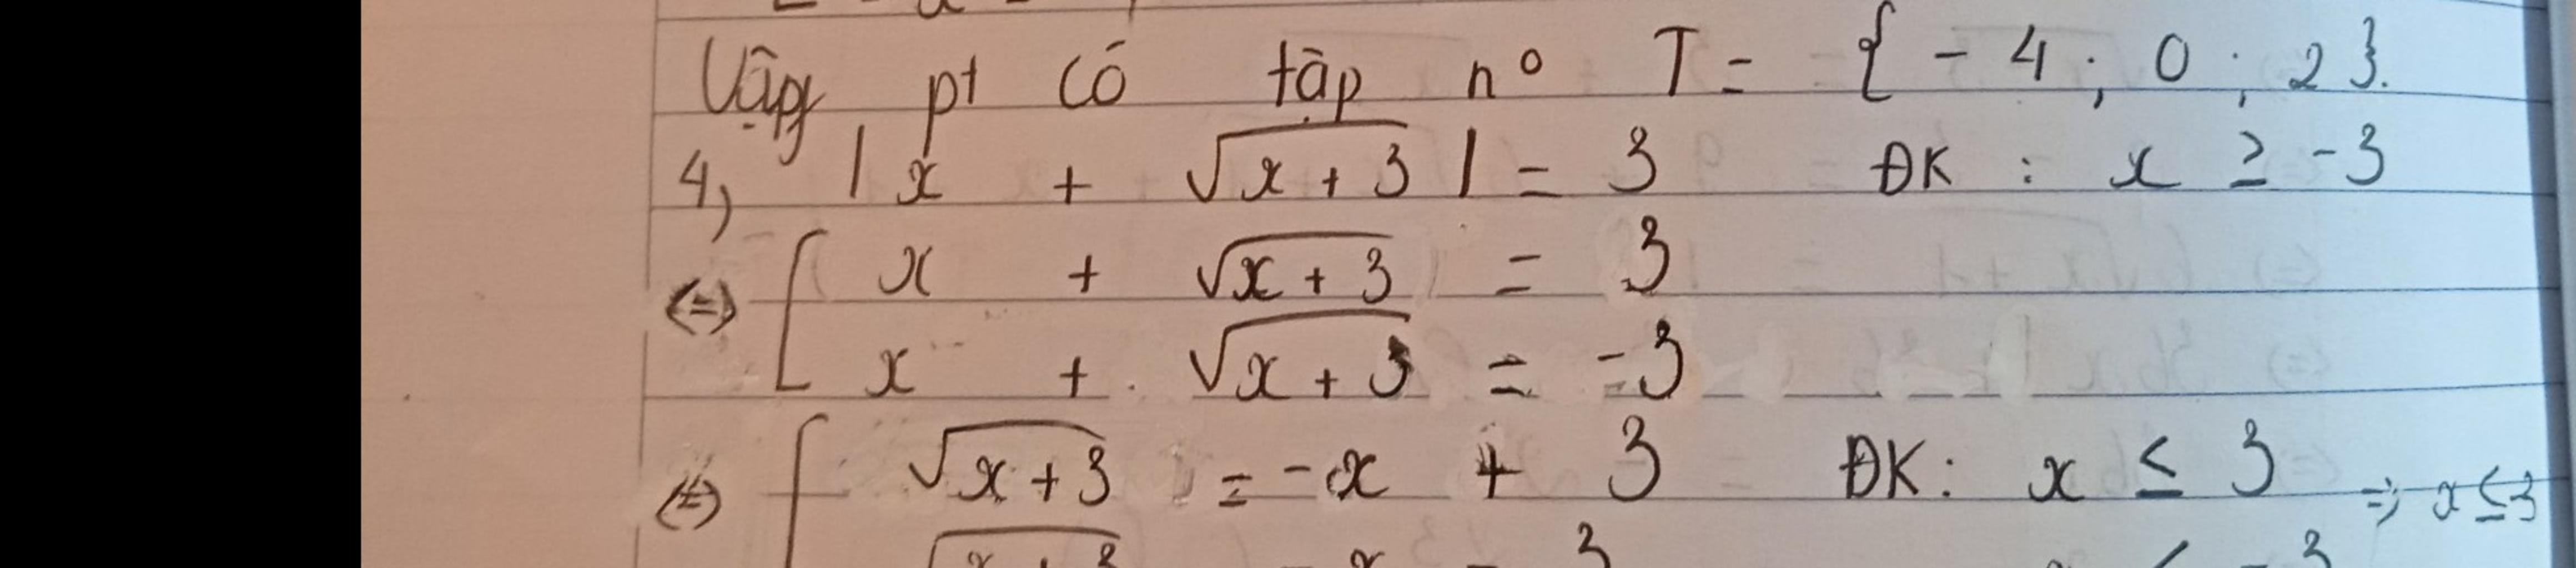 Vậy pt có tập nº T = { - 4 ; 0 ; 2 }.
4, | x + √(x + 3) | = 3 ĐK : x ≥ -3
<=> [ x + √(x + 3) = 3
x + √(x + 3) = -3
<=> [ √(x + 3) = -x + 3 ĐK : x ≤ 3 => x ≤ 3